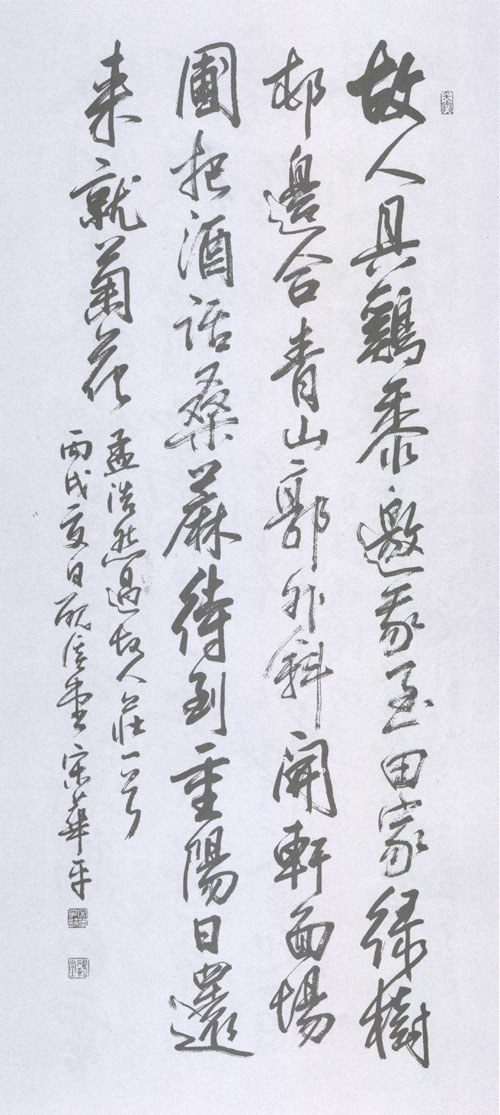 故人具鷄黍邀我至田家緑樹
邨邊合青山郭外斜開軒面場
圃把酒話桑蔴待到重陽日還
来就菊花
孟浩然過故人莊一首
丙戌夏日堂宋華平